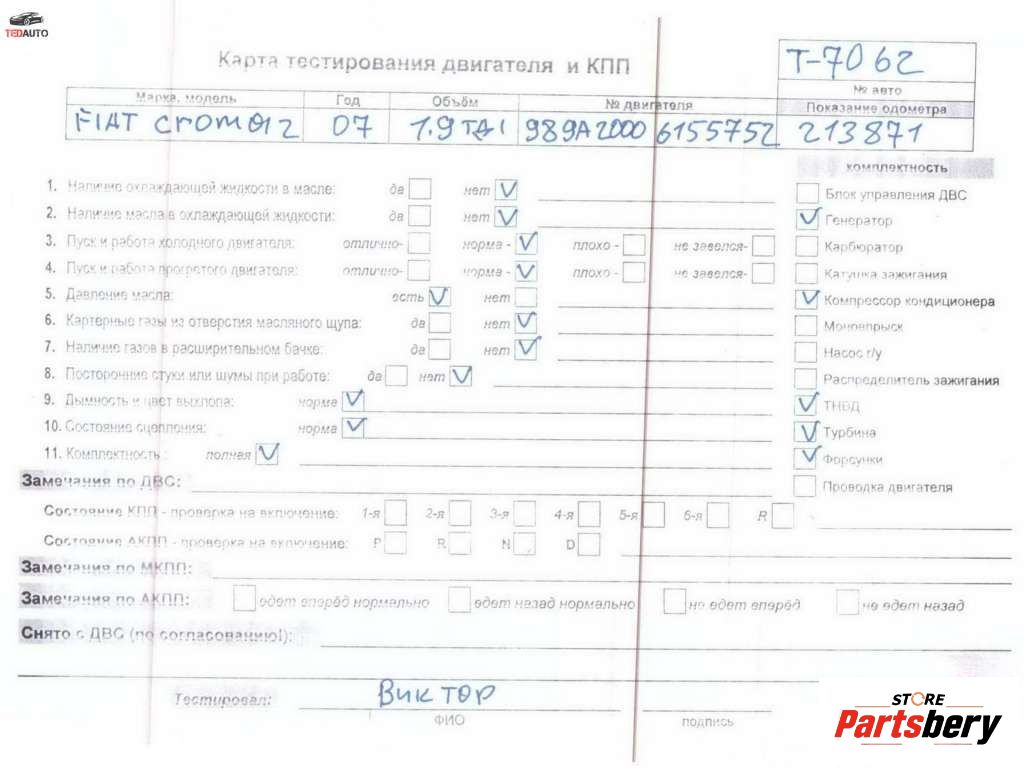 TEDAUTO
Карта тестирования двигателя и КПП
T-7062
№ авто
Марка, модель Год Объём № двигателя Показание одометра
FIAT croma 2 07 1.9 TDI 989A2000 6155752 213871
комплектность
1. Наличие охлаждающей жидкости в масле: да нет ✓ Блок управления ДВС
2. Наличие масла в охлаждающей жидкости: да нет ✓ ✓ Генератор
3. Пуск и работа холодного двигателя: отлично- норма - ✓ плохо - не завелся- Карбюратор
4. Пуск и работа прогретого двигателя: отлично- норма - ✓ плохо - не завелся- Катушка зажигания
5. Давление масла: есть ✓ нет ✓ Компрессор кондиционера
6. Картерные газы из отверстия масляного щупа: да нет ✓ Моновпрыск
7. Наличие газов в расширительном бачке: да нет ✓ Насос г/у
8. Посторонние стуки или шумы при работе: да нет ✓ Распределитель зажигания
9. Дымность и цвет выхлопа: норма ✓ ✓ ТНВД
10. Состояние сцепления: норма ✓ ✓ Турбина
11. Комплектность: полная ✓ ✓ Форсунки
Замечания по ДВС: Проводка двигателя
Состояние КПП - проверка на включение: 1-я 2-я 3-я 4-я 5-я 6-я R
Состояние АКПП - проверка на включение: P R N D
Замечания по МКПП:
Замечания по АКПП: едет вперёд нормально едет назад нормально не едет вперёд не едет назад
Снято с ДВС (по согласованию!):
Тестировал: Виктор
ФИО подпись
STORE
Partsbery